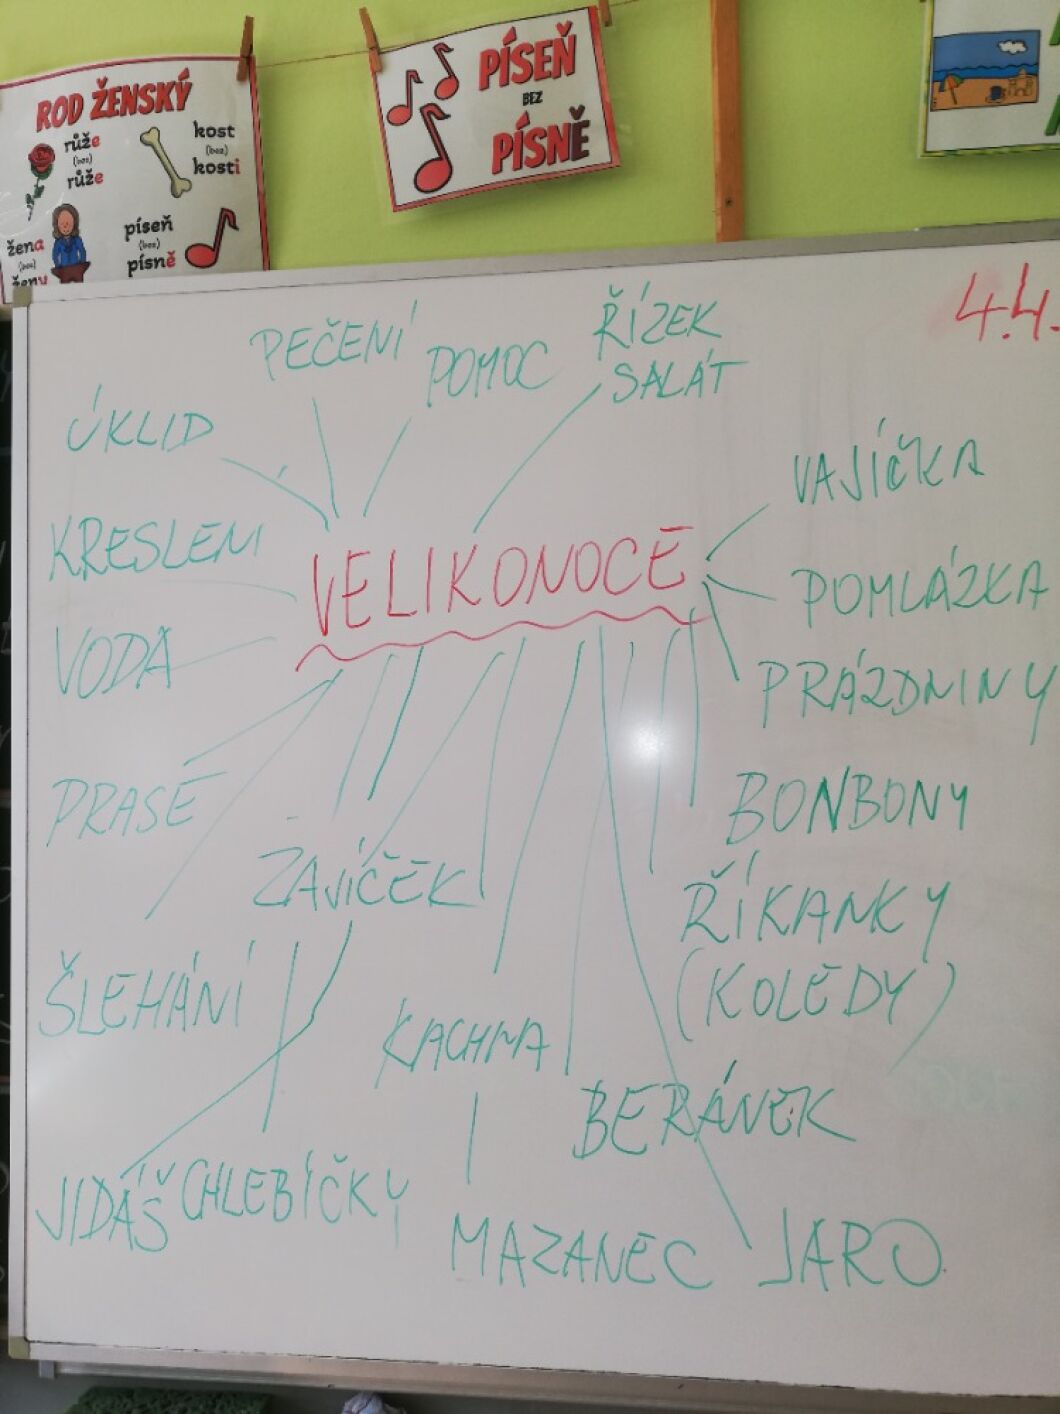 ROD ŽENSKÝ
růže
(bez)
růže
kost
(bez)
kosti
žena
(bez)
ženy
píseň
(bez)
písně
PÍSEŇ
BEZ
PÍSNĚ
4.4.
PEČENÍ
POMOC
ŘÍZEK
SALÁT
ÚKLID
VAJÍČKA
KRESLENÍ
VELIKONOCE
POMLÁZKA
VODA
PRÁZDNINY
PRASE
BONBONY
ZAJÍČEK
ŘÍKANKY
(KOLEDY)
ŠLEHÁNÍ
KACHNA
BERÁNEK
JIDÁŠ
CHLEBÍČKY
MAZANEC
JARO